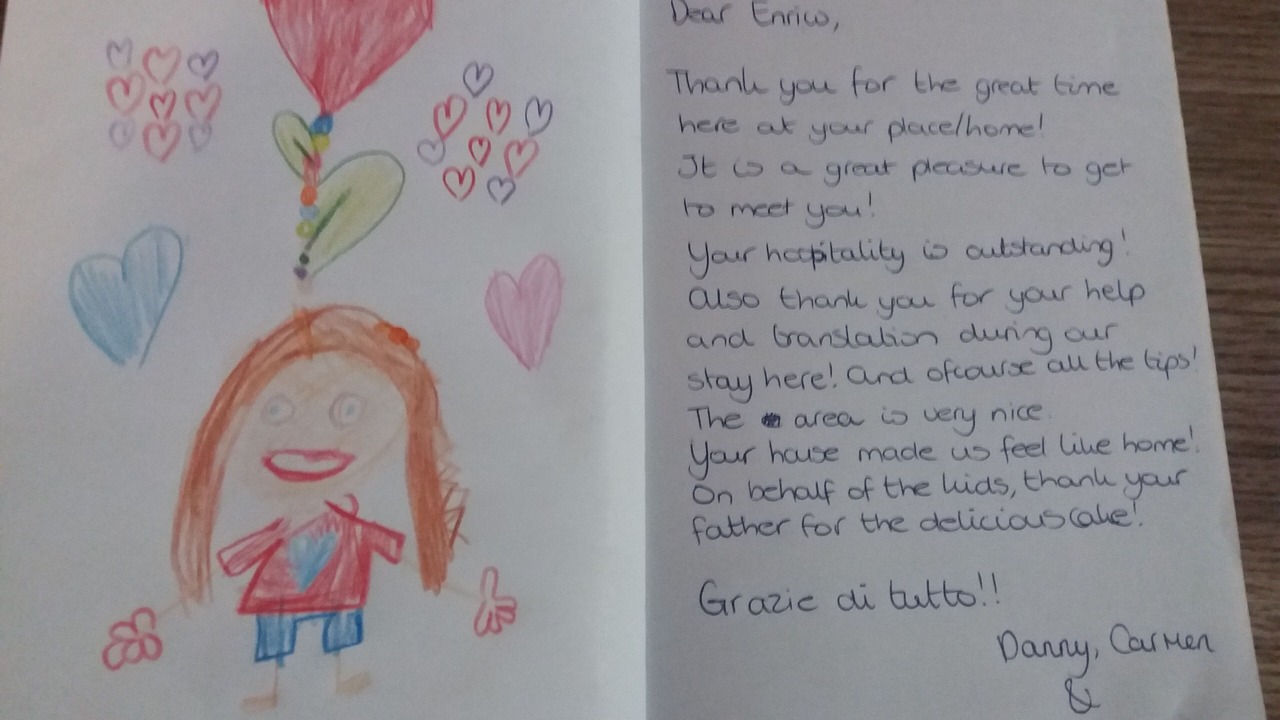 Dear Enrico,
Thank you for the great time
here at your place/home!
It is a great pleasure to get
to meet you!
Your hospitality is outstanding!
Also thank you for your help
and translation during our
stay here! And ofcourse all the tips!
The area is very nice.
Your house made us feel like home!
On behalf of the kids, thank your
father for the delicious cake!
Grazie di tutto!!
Danny, Carmen
&